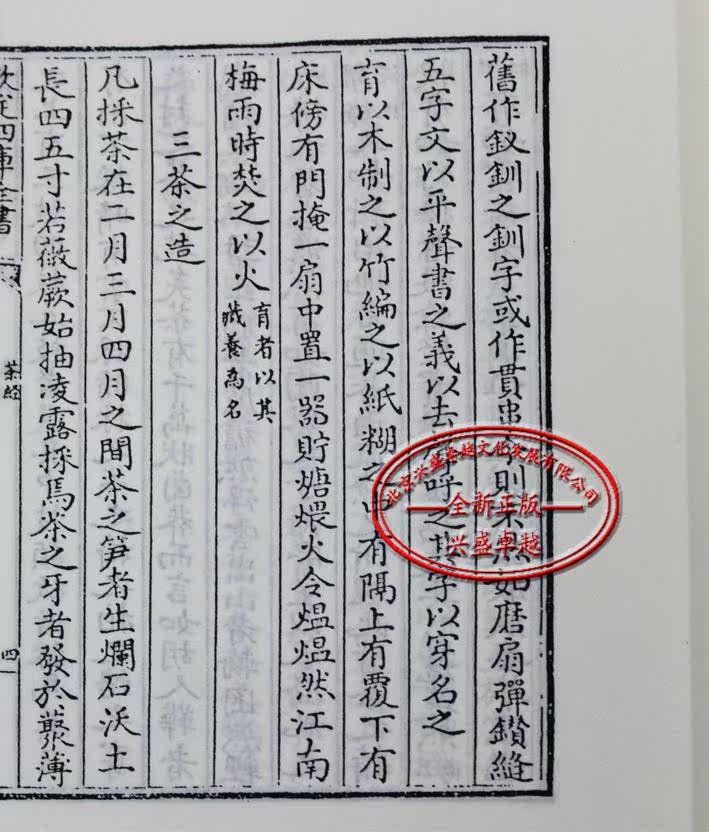 舊作釵釧之釧字或作貫串字則不然如磨扇彈鑚縫
五字文以平聲書之義以去聲呼之其字以穿名之
育以木制之以竹編之以紙糊之中有隔上有覆下有
床傍有門掩一扇中置一器貯煻煨火令熅熅然江南
梅雨時焚之以火
育者以其
蔵養為名
三茶之造
凡採茶在二月三月四月之間茶之笋者生爛石沃土
長四五寸若薇蕨始抽凌露採焉茶之牙者發於藂薄
欽定四庫全書
茶經
四
北京兴盛卓越文化发展有限公司
全新正版
兴盛卓越